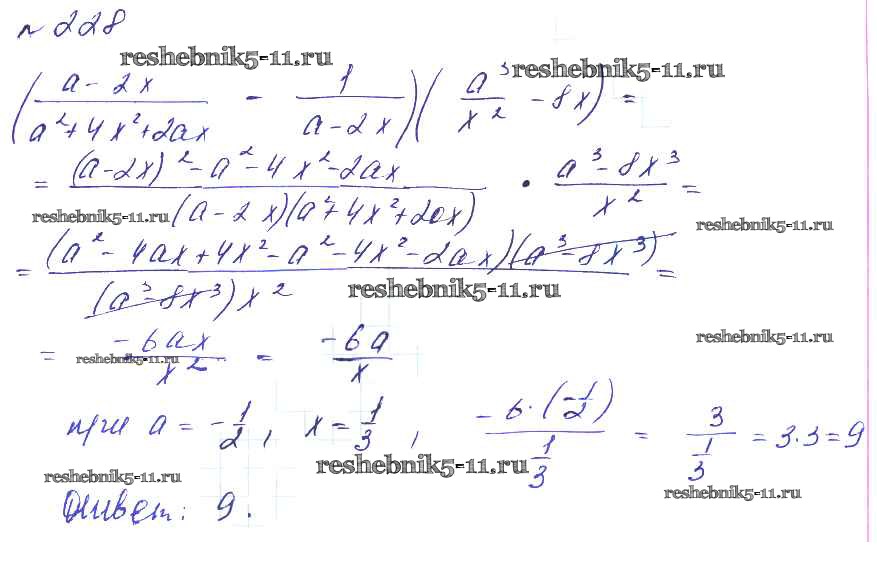 № 228
reshebnik5-11.ru
reshebnik5-11.ru
((a - 2x)/(a²+4x²+2ax) - 1/(a-2x))(a³/x² - 8x) =
= ((a-2x)² - a² - 4x² - 2ax)/((a-2x)(a²+4x²+2ax)) · (a³-8x³)/x² =
reshebnik5-11.ru
reshebnik5-11.ru
= ((a² - 4ax + 4x² - a² - 4x² - 2ax)(a³-8x³))/((a³-8x³)x²) =
reshebnik5-11.ru
= -6ax/x² = -6a/x
reshebnik5-11.ru
reshebnik5-11.ru
при a = -1/2, x = 1/3, (-6·(-1/2))/(1/3) = 3/(1/3) = 3·3 = 9
reshebnik5-11.ru
reshebnik5-11.ru
reshebnik5-11.ru
Ответ: 9.